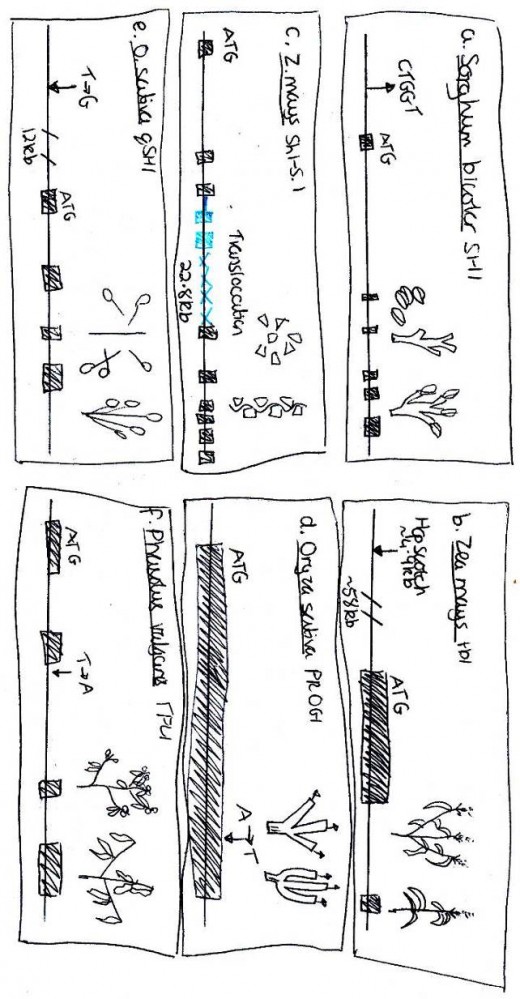 a. Sorghum bicolor SH1
CTGG-T
ATG
b. Zea mays tb1
Hopscotch
~4.9kb
~58kb
ATG
c. Z. mays Sh1-5.1
ATG
Translocation
22.8kb
d. Oryza sativa PROG1
ATG
A→T
e. O. sativa qSH1
T→G
12kb
ATG
f. Phaseolus vulgaris TFL1
ATG
T→A